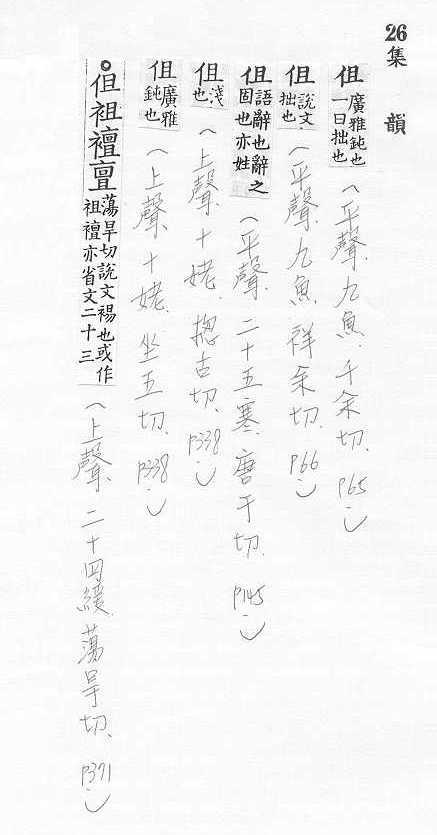 26集　韻
伹廣雅鈍也一曰拙也（平聲、九魚、千余切、P65.）
伹說文拙也（平聲、九魚、祥余切、P66.）
但語辭也辭之固也亦姓（平聲、二十五寒、唐干切、P145.）
伹淺也（上聲、十姥、摠古切、P338.）
伹廣雅鈍也（上聲、十姥、坐五切、P338.）
但袒襢亶蕩旱切說文裼也或作袒襢亦省文二十三（上聲、二十四緩、蕩旱切、P371.）